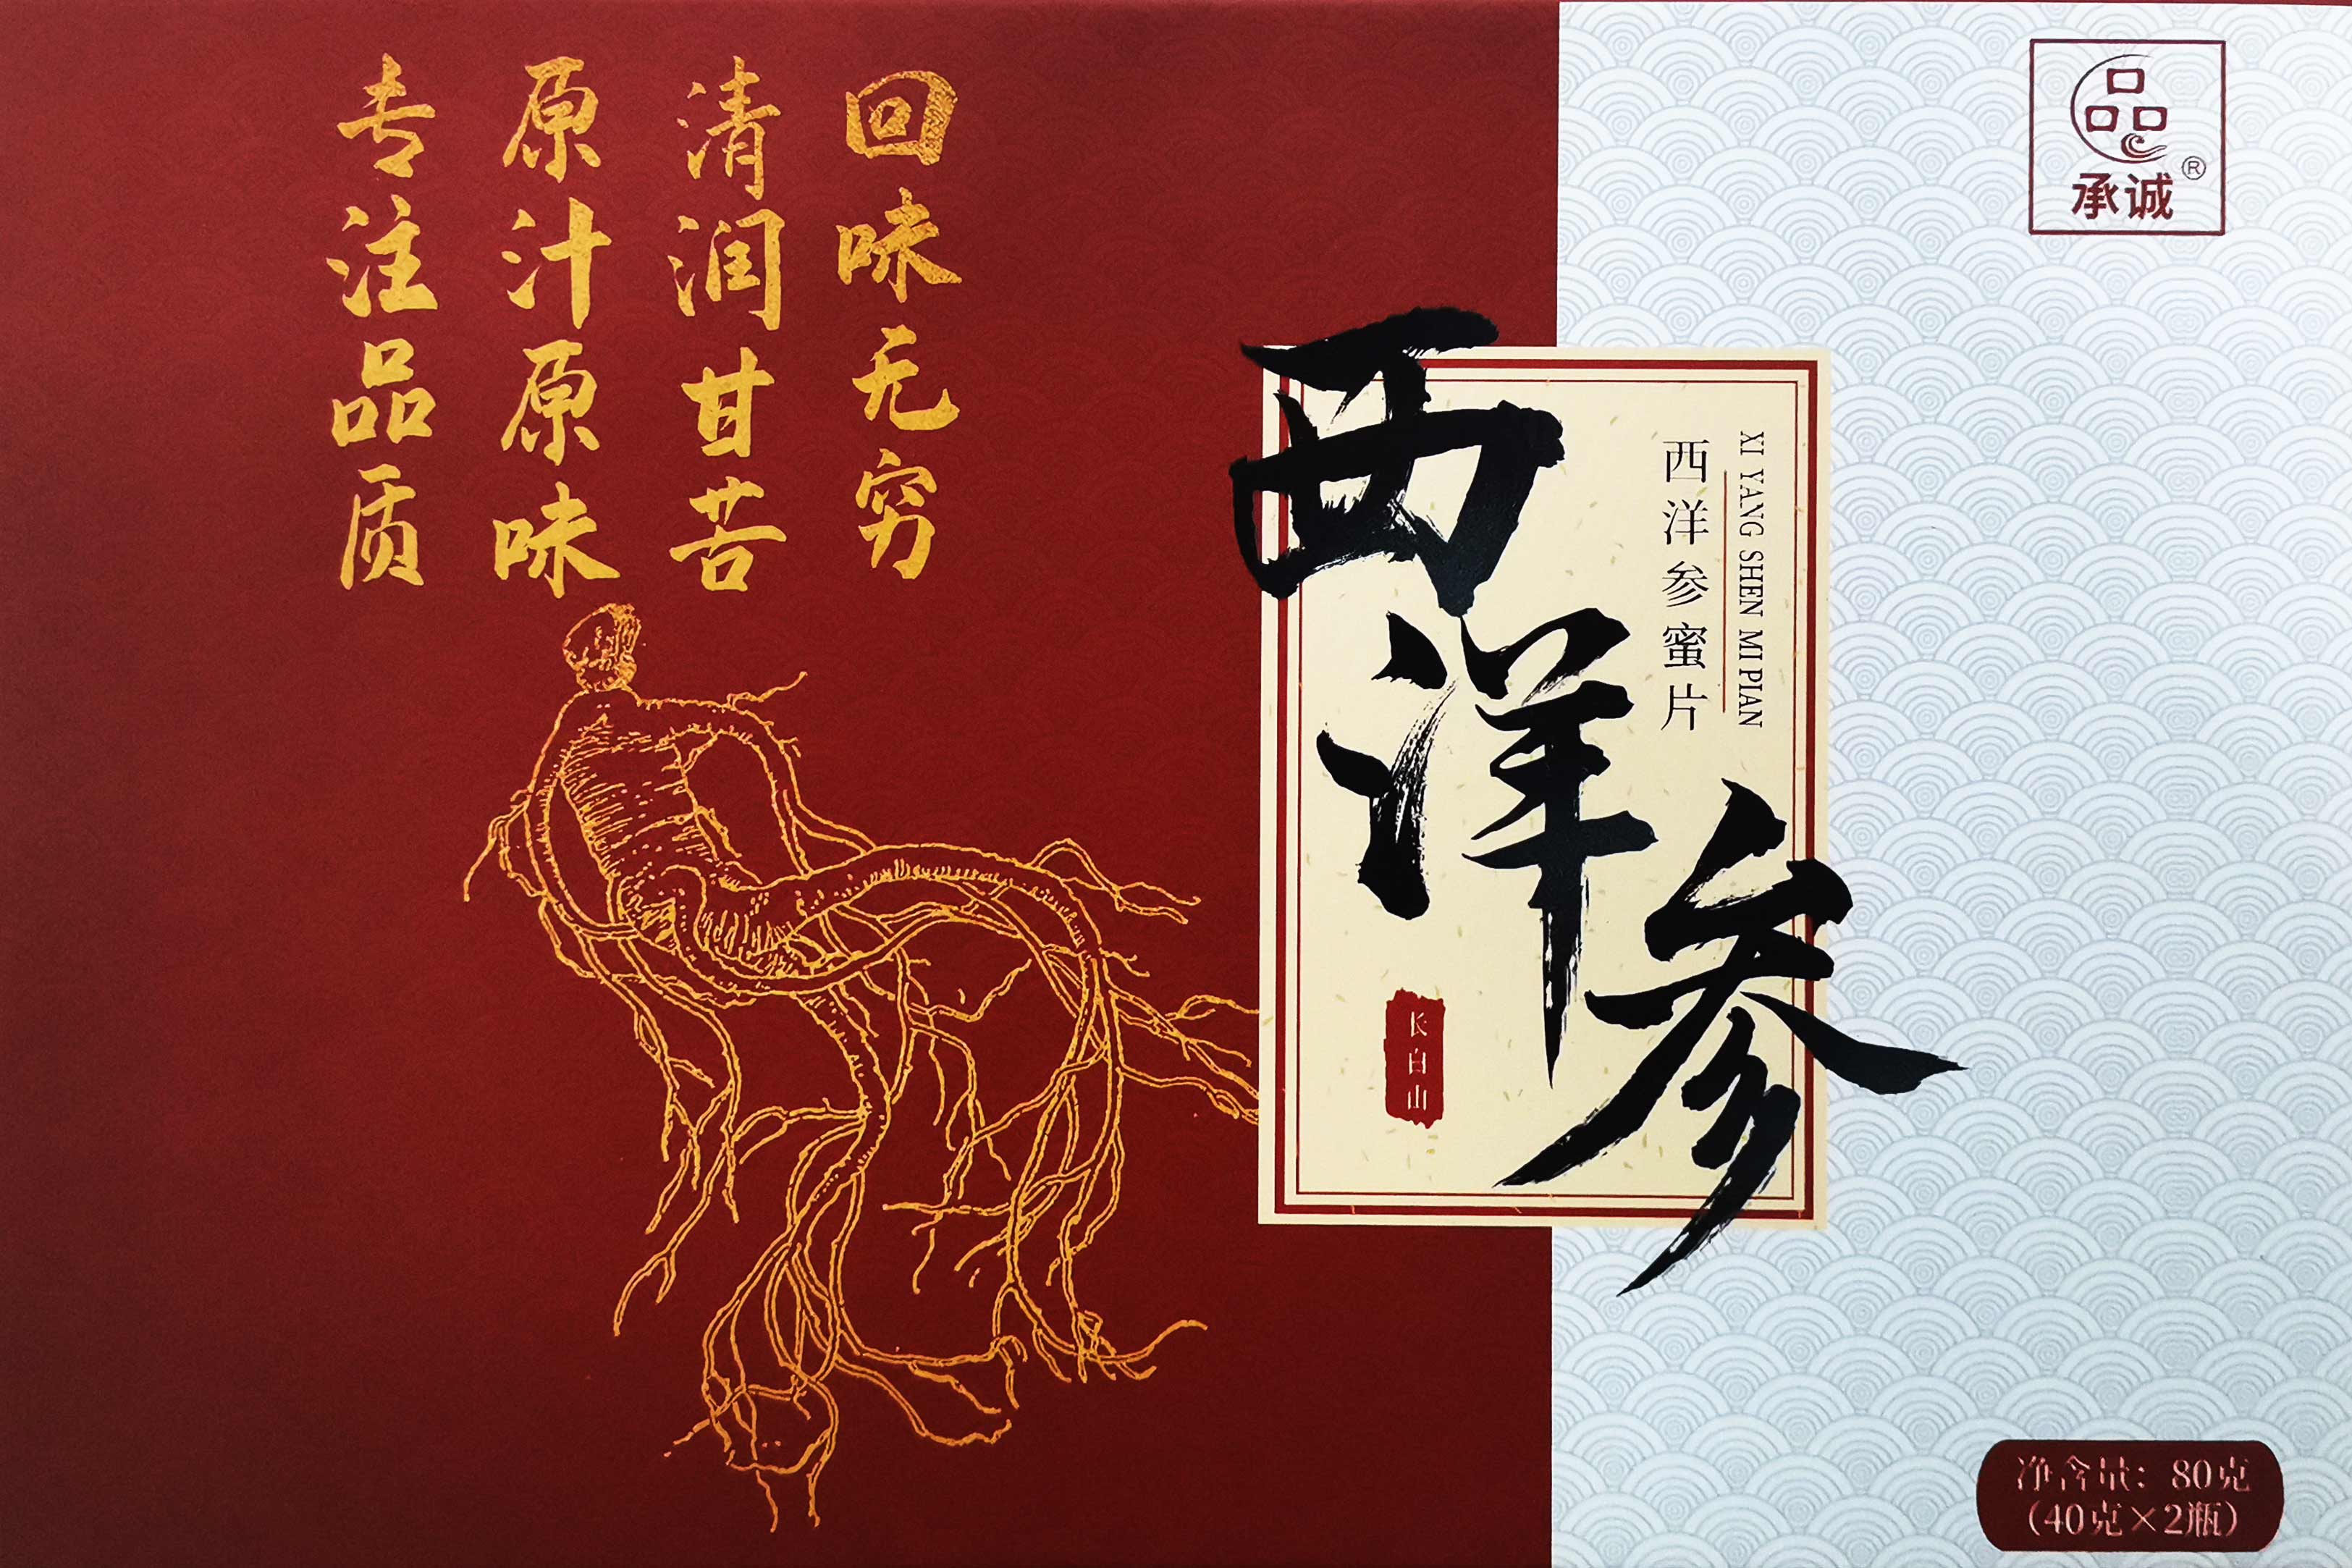 回味无穷
清润甘苦
原汁原味
专注品质
西洋参
西洋参蜜片
XI YANG SHEN MI PIAN
长白山
品
承诚®
净含量：80克
（40克×2瓶）